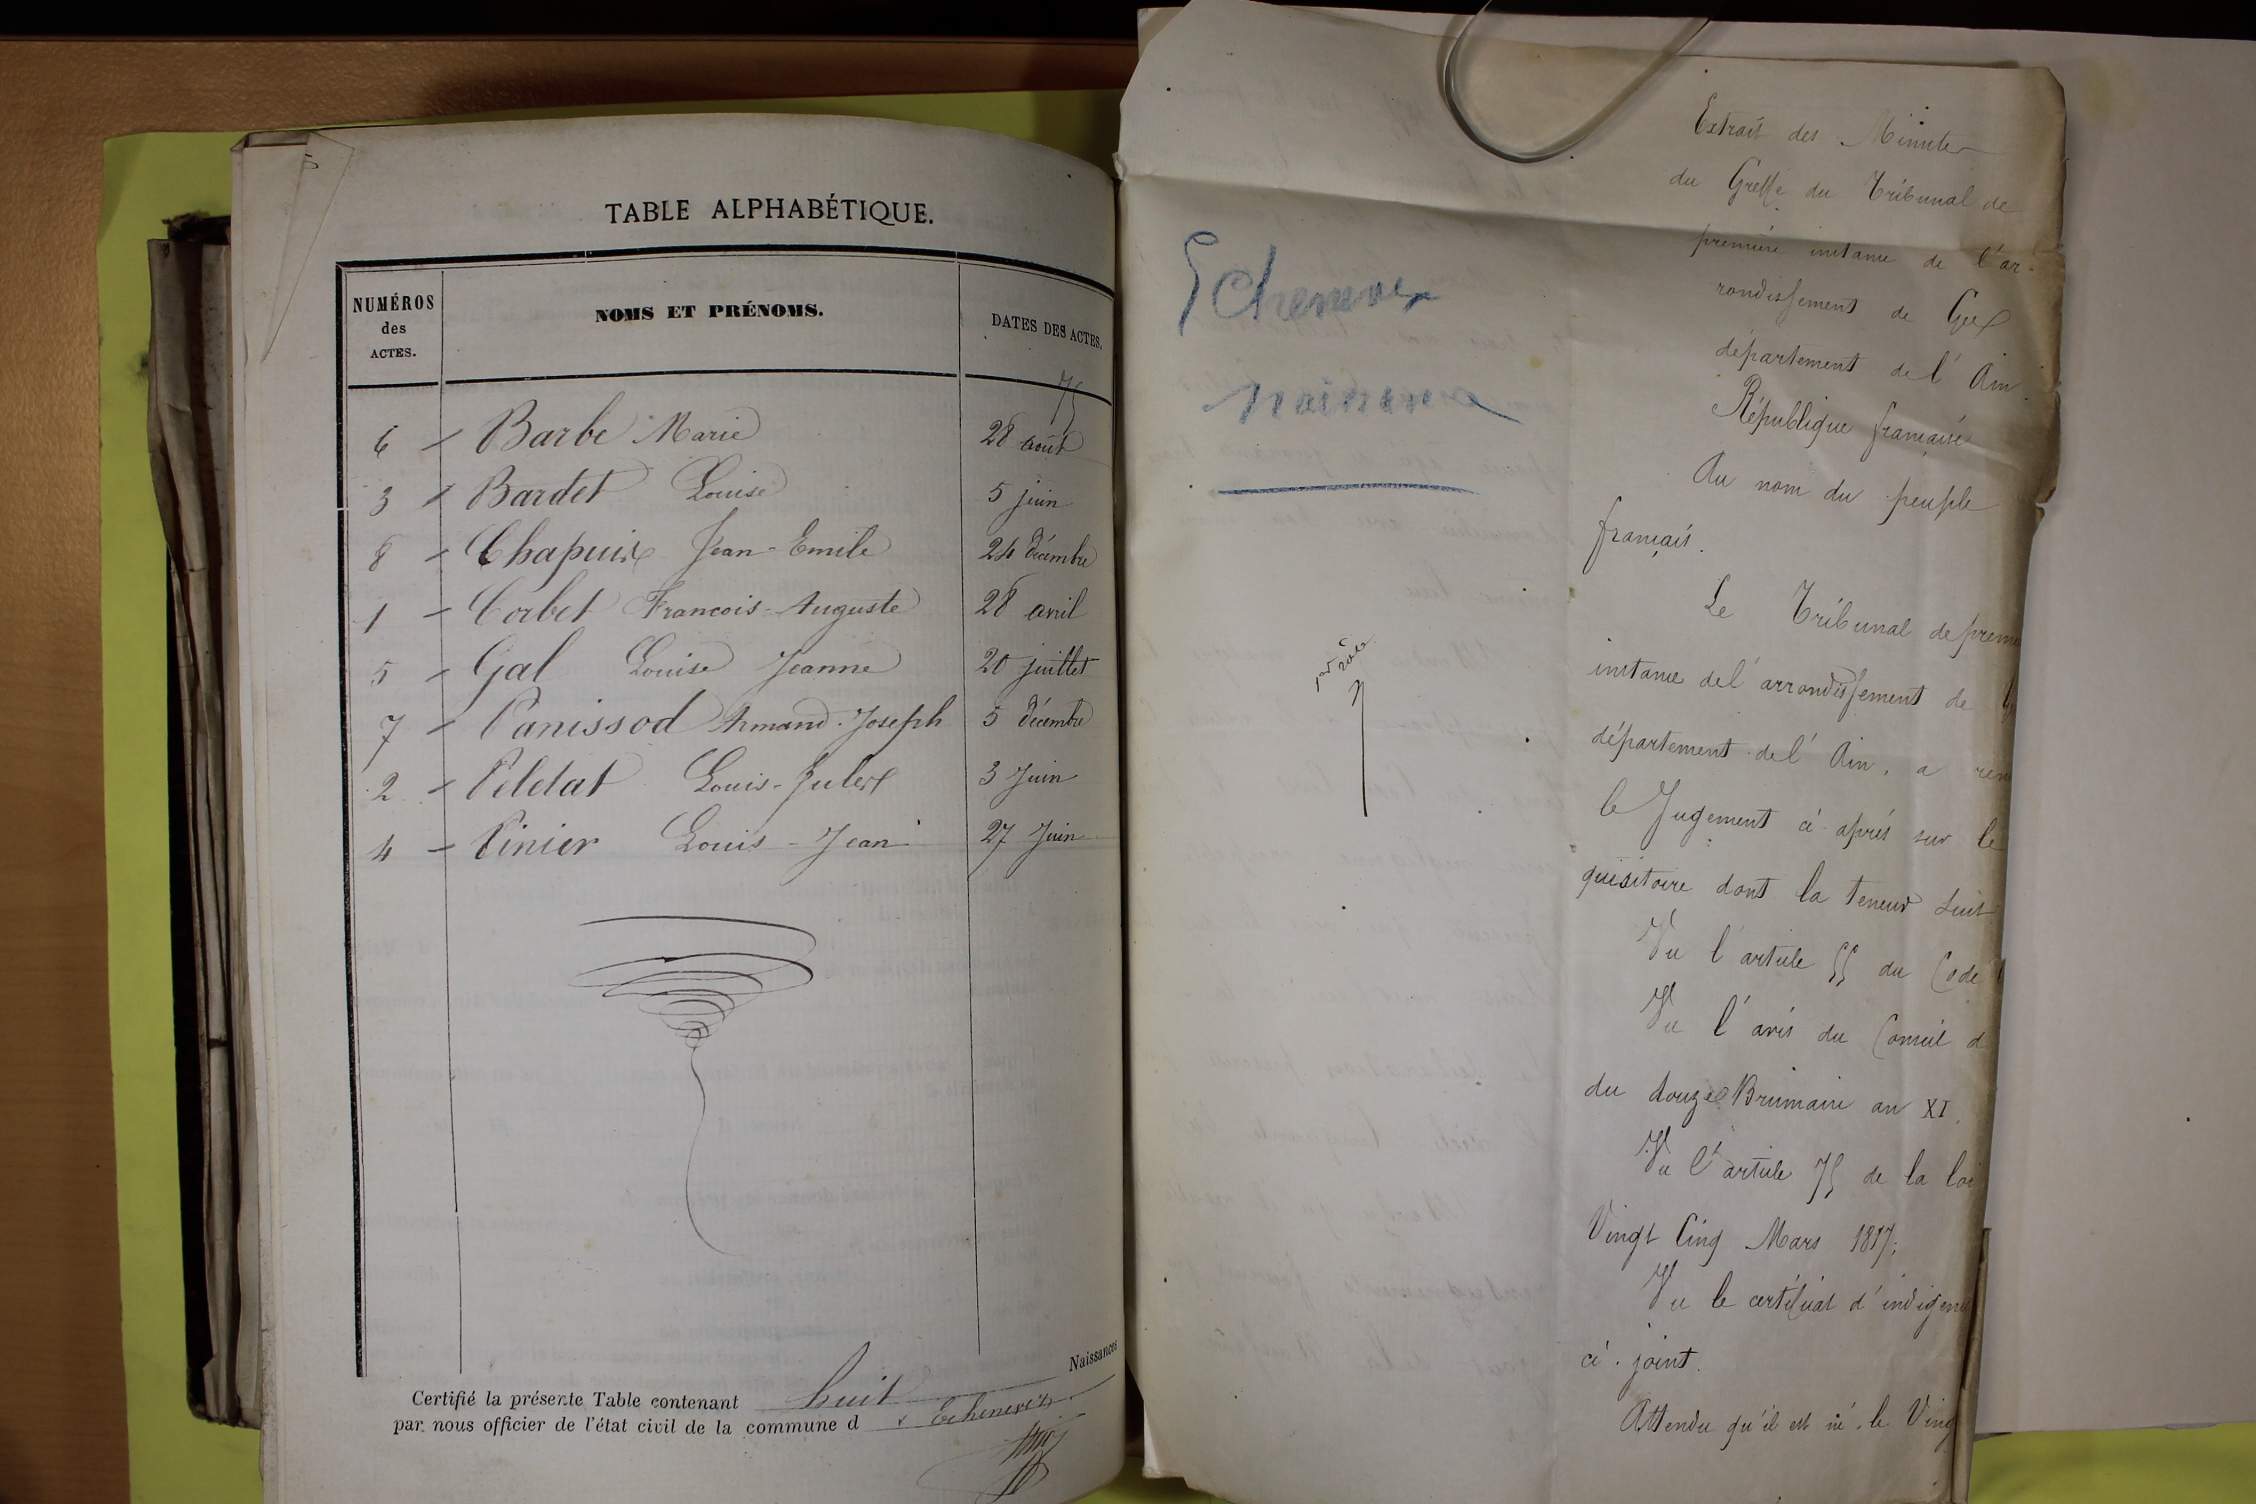 TABLE ALPHABÉTIQUE.
NUMÉROS des ACTES.
NOMS ET PRÉNOMS.
DATES DES ACTES.
75
6 - Barbe Marie 28 août
3 - Bardet Louise 5 juin
8 - Chapuix Jean-Emile 24 Décembre
1 - Corbet Francois-Auguste 28 avril
5 - Gal Louise Jeanne 20 juillet
7 - Panissod Armand-Joseph 5 Décembre
2 - Peletat Louis-Jules 3 Juin
4 - Pinier Louis-Jean 27 Juin
Naissances
Certifié la présente Table contenant huit
par nous officier de l'état civil de la commune d Echenevex
Echenevex
naissance
Extrait des Minutes
du Greffe du Tribunal de
première instance de l'ar-
rondissement de Gex
département de l'Ain.
République française
Au nom du peuple
français.
Le Tribunal de prem
instance de l'arrondissement de G
département de l'Ain, a ren
le Jugement ci-après sur le
quisitoire dont la teneur suit
Vu l'article 55 du Code
Vu l'avis du Conseil d
du douze Brumaire an XI.
Vu l'article 75 de la loi
Vingt Cinq Mars 1817;
Vu le certificat d'indigen
ci-joint.
Attendu qu'il est né le Ving